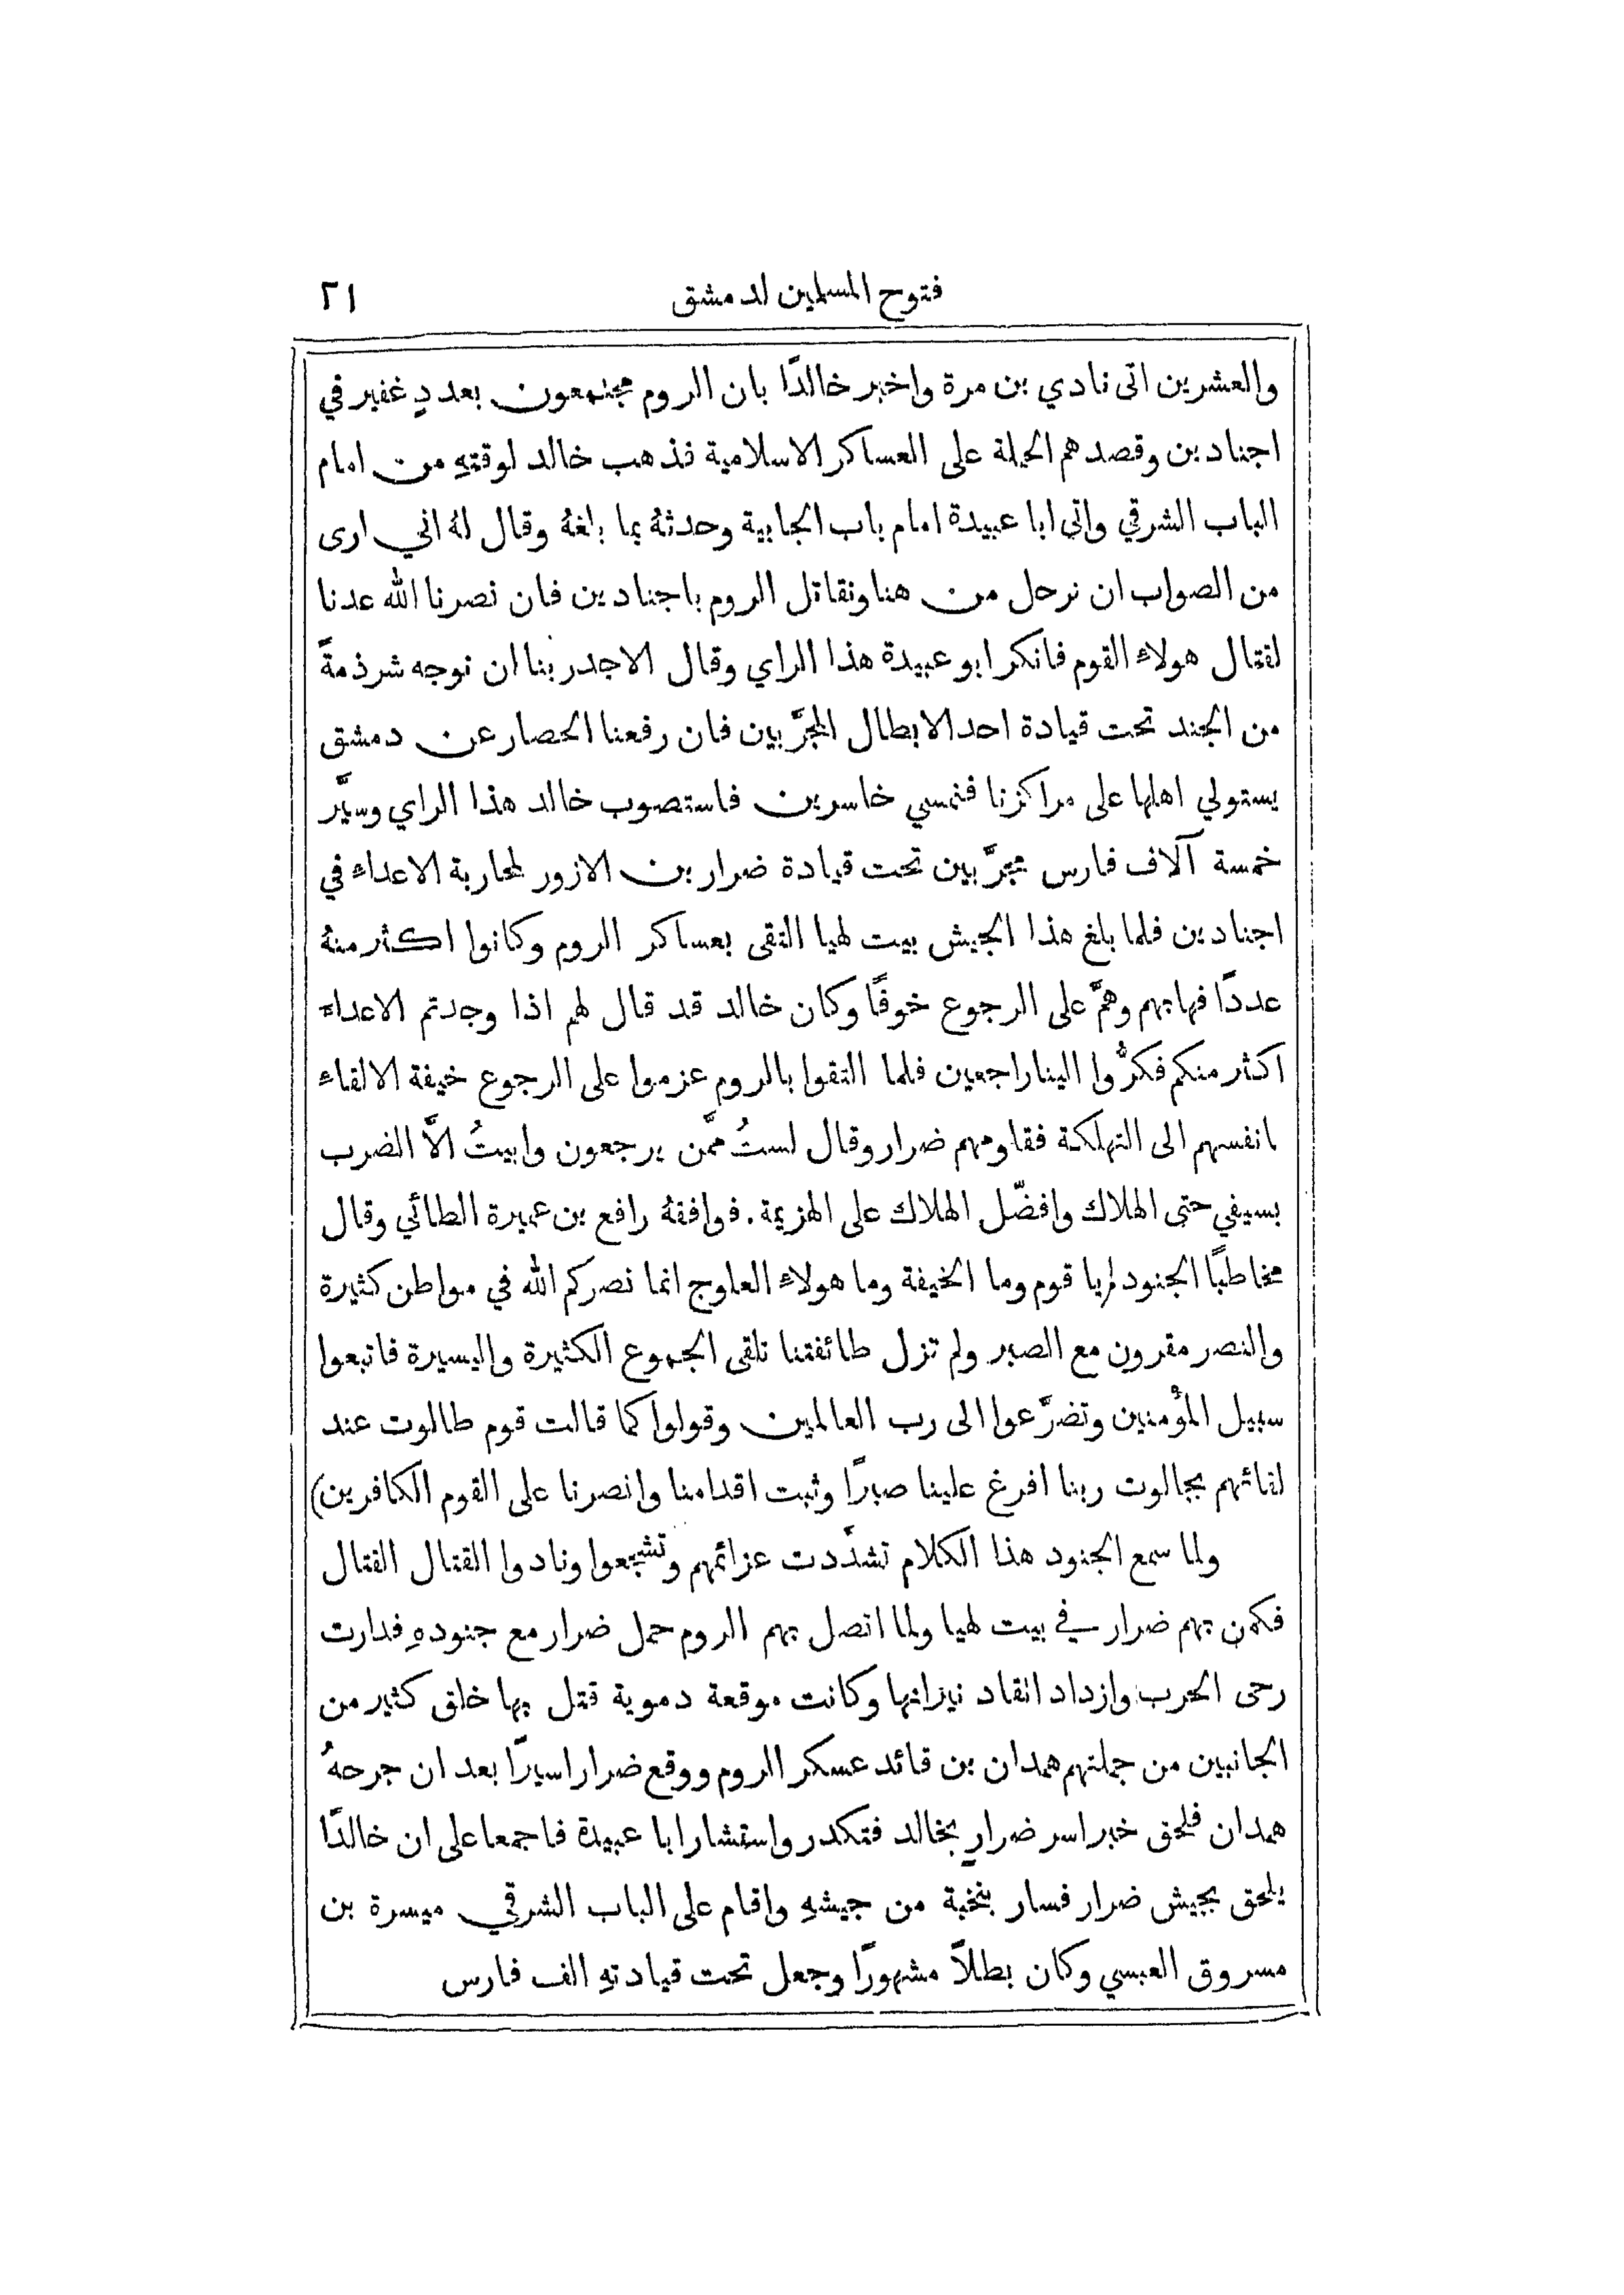 فتوح المسلمين لدمشق ٢١
والعشرين اتى نادي بن مرة واخبر خالدًا بان الروم مجتمعون بعددٍ غفير في
اجنادين وقصدهم الحملة على العساكر الاسلامية فذهب خالد لوقتهِ من امام
الباب الشرقي واتى ابا عبيدة امام باب الجابية وحدثهُ بما بلغهُ وقال لهُ اني ارى
من الصواب ان نرحل من هنا ونقاتل الروم باجنادين فان نصرنا الله عدنا
لقتال هولاء القوم فانكر ابو عبيدة هذا الراي وقال الاجدر بنا ان نوجه شرذمةً
من الجند تحت قيادة احد الابطال المجرَّبين فان رفعنا الحصار عن دمشق
يستولي اهلها على مراكزنا فنمسي خاسرين فاستصوب خالد هذا الراي وسيَّر
خمسة آلاف فارس مجرَّبين تحت قيادة ضرار بن الازور لمحاربة الاعداء في
اجنادين فلما بلغ هذا الجيش بيت لهيا التقى بعساكر الروم وكانوا اكثر منهُ
عددًا فهابهم وهمَّ على الرجوع خوفًا وكان خالد قد قال لهم اذا وجدتم الاعداء
اكثر منكم فكرُّوا الينا راجعين فلما التقوا بالروم عزموا على الرجوع خيفة الالقاء
بانفسهم الى التهلكة فقاومهم ضرار وقال لستُ ممَّن يرجعون وابيتُ الَّا الضرب
بسيفي حتى الهلاك وافضّل الهلاك على الهزيمة. فوافقهُ رافع بن عميرة الطائي وقال
مخاطبًا الجنود (يا قوم وما الخيفة وما هولاء العلوج انما نصركم الله في مواطن كثيرة
والنصر مقرون مع الصبر ولم تزل طائفتنا تلقى الجموع الكثيرة واليسيرة فاتبعوا
سبيل المؤْمنين وتضرَّعوا الى رب العالمين وقولوا كما قالت قوم طالوت عند
لقائهم بجالوت ربنا افرغ علينا صبرًا وثبت اقدامنا وانصرنا على القوم الكافرين)
ولما سمع الجنود هذا الكلام تشدَّدت عزائمهم وتشجعوا ونادوا القتال القتال
فكمن بهم ضرار في بيت لهيا ولما اتصل بهم الروم حمل ضرار مع جنودهِ فدارت
رحى الحرب وازداد اتقاد نيرانها وكانت موقعة دموية قتل بها خلق كثير من
الجانبين من جملتهم همدان بن قائد عسكر الروم ووقع ضرار اسيرًا بعد ان جرحهُ
همدان فلحق خبر اسر ضرارٍ بخالد فتكدر واستشار ابا عبيدة فاجمعا على ان خالدًا
يلحق بجيش ضرار فسار بنخبة من جيشهِ واقام على الباب الشرقي ميسرة بن
مسروق العبسي وكان بطلًا مشهورًا وجعل تحت قيادتهِ الف فارس